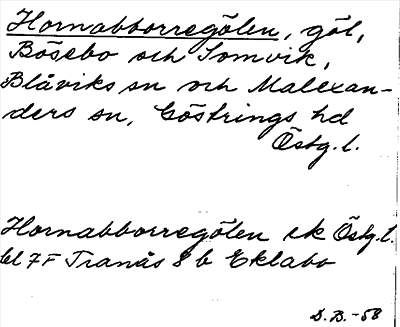 Hornabborregölen, göl,
Bösebo och Somvik,
Blåviks sn och Malexan-
ders sn, Göstrings hd
Östg. l.
Hornabborregölen ek Östg. l.
bl 7F Tranås 8 b Eklabo
D. B. -58